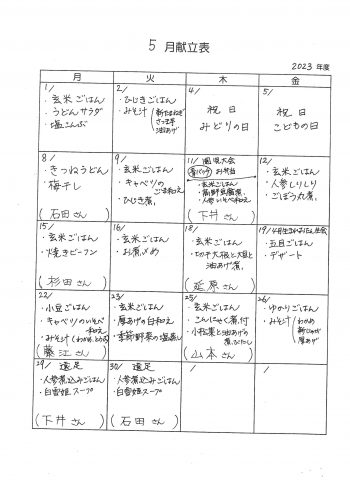 5 月献立表
2023 年度
月 火 木 金
1/
・玄米ごはん
・うどんサラダ
・塩こんぶ
2/
・ひじきごはん
・みそ汁
新たまねぎ
さつま芋
油あげ
4/
祝 日
みどりの日
5/
祝 日
こどもの日
8/
・きつねうどん
・梅干し
(石田さん)
9/
・玄米ごはん
・キャベツの
ごま和え
・ひじき煮
11/ 園児大会
お弁当
・玄米ごはん
・高野豆腐煮
・人参いそべ和え
(下井さん)
12/
・玄米ごはん
・人参しりしり
・ごぼう丸煮
15/
・玄米ごはん
・焼きビーフン
(杉田さん)
16/
・玄米ごはん
・お煮〆め
18/
・玄米ごはん
・切干大根と大豆と
油あげ煮
(延原さん)
19/ 4月生まれお誕生会
・五目ごはん
・デザート
22/
・小豆ごはん
・キャベツのいそべ
和え
・みそ汁(わかめ、とうふ)
(藤江さん)
23/
・玄米ごはん
・厚あげの白和え
・季節野菜の塩蒸し
25/
・玄米ごはん
・こんにゃく煮付
・小松菜と油あげの
煮びたし
(山本さん)
26/
・ゆかりごはん
・みそ汁
わかめ
新じゃが
厚あげ
29/ 遠足
・人参煮込みごはん
・白雪姫スープ
(下井さん)
30/ 遠足
・人参煮込みごはん
・白雪姫スープ
(石田さん)
/
/